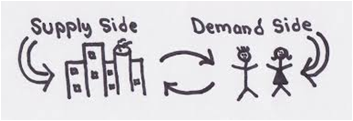 Supply Side Demand Side